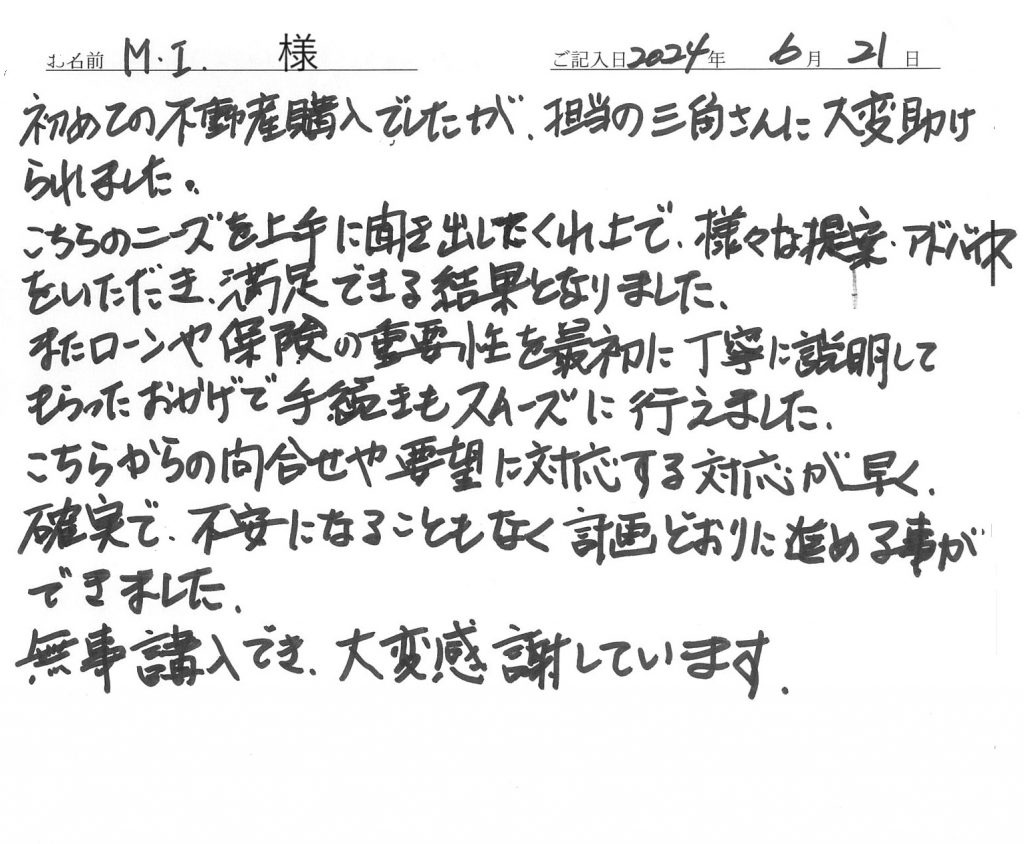 お名前 M.I. 様 ご記入日2024年 6月 21日
初めての不動産購入でしたが、担当の三角さんに大変助け
られました。
こちらのニーズを上手に聞き出してくれ上で、様々な提案・アドバイス
をいただき、満足できる結果となりました。
またローンや保険の重要性を最初に丁寧に説明して
もらったおかげで手続きもスムーズに行えました。
こちらからの問合せや要望に対応する対応が早く、
確実で、不安になることもなく計画どおりに進める事が
できました。
無事講入でき、大変感謝しています。